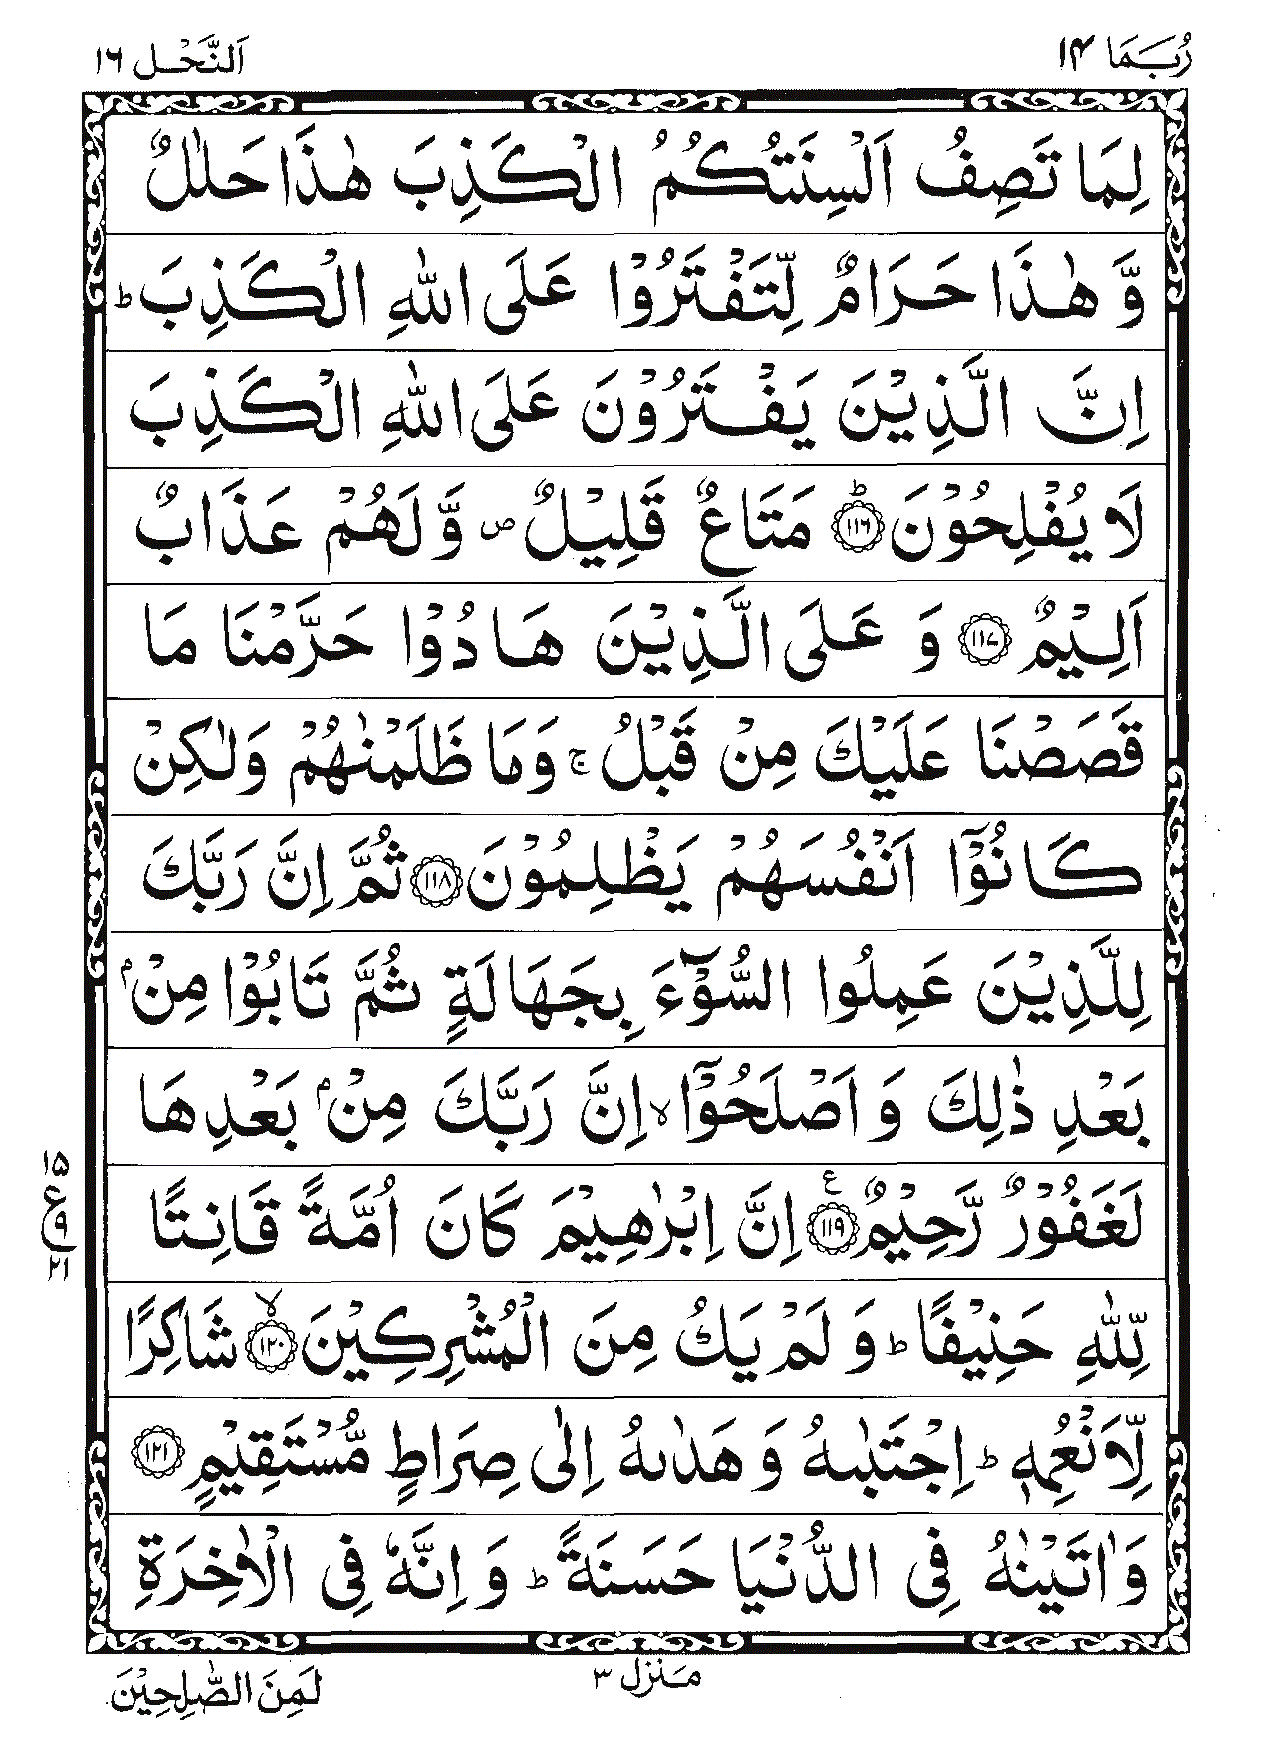 رُبَمَا ١٤
اَلنَّحْل ١٦
لِمَا تَصِفُ اَلْسِنَتُكُمُ الْكَذِبَ هٰذَا حَلٰلٌ
وَّ هٰذَا حَرَامٌ لِّتَفْتَرُوْا عَلَى اللّٰهِ الْكَذِبَ ؕ
اِنَّ الَّذِيْنَ يَفْتَرُوْنَ عَلَى اللّٰهِ الْكَذِبَ
لَا يُفْلِحُوْنَ ؕ ﴿١١٦﴾ مَتَاعٌ قَلِيْلٌ ۪ وَّ لَهُمْ عَذَابٌ
اَلِيْمٌ ﴿١١٧﴾ وَ عَلَى الَّذِيْنَ هَادُوْا حَرَّمْنَا مَا
قَصَصْنَا عَلَيْكَ مِنْ قَبْلُ ۚ وَمَا ظَلَمْنٰهُمْ وَلٰكِنْ
كَانُوْۤا اَنْفُسَهُمْ يَظْلِمُوْنَ ﴿١١٨﴾ ثُمَّ اِنَّ رَبَّكَ
لِلَّذِيْنَ عَمِلُوا السُّوْٓءَ بِجَهَالَةٍ ثُمَّ تَابُوْا مِنْۢ
بَعْدِ ذٰلِكَ وَ اَصْلَحُوْۤا ۙ اِنَّ رَبَّكَ مِنْۢ بَعْدِهَا
لَغَفُوْرٌ رَّحِيْمٌ ﴿١١٩﴾ ع اِنَّ اِبْرٰهِيْمَ كَانَ اُمَّةً قَانِتًا
١٥
ع
٩
٢١
لِّلّٰهِ حَنِيْفًا ؕ وَ لَمْ يَكُ مِنَ الْمُشْرِكِيْنَ ۙ ﴿١٢٠﴾ شَاكِرًا
لِّاَنْعُمِهٖ ؕ اِجْتَبٰىهُ وَ هَدٰىهُ اِلٰى صِرَاطٍ مُّسْتَقِيْمٍ ﴿١٢١﴾
وَاٰتَيْنٰهُ فِي الدُّنْيَا حَسَنَةً ؕ وَ اِنَّهٗ فِي الْاٰخِرَةِ
مَنْزِل ٣
لَمِنَ الصّٰلِحِيْنَ